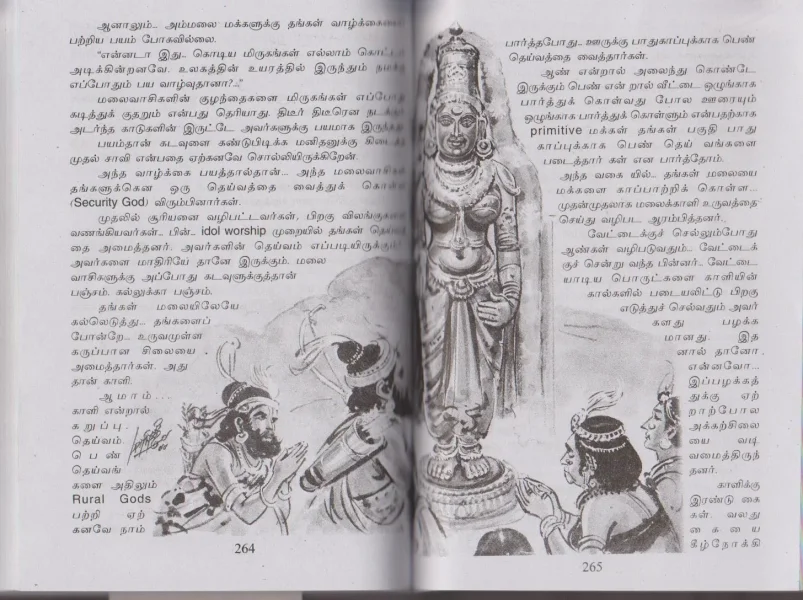 ஆனாலும்.. அம்மலை மக்களுக்கு தங்கள்
பற்றிய பயம் போகவில்லை.
"என்னடா இது.. கொடிய மிருகங்கள் எல்லாம்
அடிக்கின்றனவே. உலகத்தின் உயரத்தில் இருந்தும்
எப்போதும் பய வாழ்வுதானா?.."
மலைவாசிகளின் குழந்தைகளை மிருகங்கள்
கடித்துக் குதறும் என்பது தெரியாது. திடீர் திடீரென
அடர்ந்த காடுகளின் இருட்டே அவர்களுக்கு பயமாக
பயம்தான் கடவுளை கண்டுபிடிக்க மனிதனுக்கு
முதல் சாவி என்பதை ஏற்கனவே சொல்லியிருக்கிறேன்.
அந்த வாழ்க்கை பயத்தால்தான்... அந்த
தங்களுக்கென ஒரு தெய்வத்தை வைத்துக்
(Security God) விரும்பினார்கள்.
முதலில் சூரியனை வழிபட்டவர்கள், பிறகு
வணங்கியவர்கள்.. பின்.. idol worship முறையில் தங்கள்
தை அமைத்தனர். அவர்களின் தெய்வம் எப்படியிருக்கும்?
அவர்களை மாதிரியே தானே இருக்கும். மலை
வாசிகளுக்கு அப்போது கடவுளுக்குத்தான்
பஞ்சம். கல்லுக்கா பஞ்சம்.
தங்கள் மலையிலேயே
கல்லெடுத்து... தங்களைப்
போன்றே... உருவமுள்ள
கருப்பான சிலையை
அமைத்தார்கள். அது
தான் காளி.
ஆமாம்....
காளி என்றால்
கறுப்பு.
தெய்வம்.
பெண்
தெய்வங்
களை அதிலும்
Rural Gods
பற்றி ஏற்
கனவே நாம்
264
பார்த்தபோது.. ஊருக்கு பாதுகாப்புக்காக பெண்
தெய்வத்தை வைத்தார்கள்.
ஆண் என்றால் அலைந்து கொண்டே
இருக்கும் பெண் என் றால் வீட்டை ஒழுங்காக
பார்த்துக் கொள்வது போல ஊரையும்
ஒழுங்காக பார்த்துக் கொள்ளும் என்பதற்காக
primitive மக்கள் தங்கள் பகுதி பாது
காப்புக்காக பெண் தெய் வங்களை
படைத்தார் கள் என பார்த்தோம்.
அந்த வகை யில்.. தங்கள் மலையை
மக்களை காப்பாற்றிக் கொள்ள...
முதன்முதலாக மலைக்காளி உருவத்தை
செய்து வழிபட.. ஆரம்பித்தனர்..
வேட்டைக்குச் செல்லும்போது
ஆண்கள் வழிபடுவதும்.. வேட்டைக்
குச் சென்று வந்த பின்னர்.. வேட்டை
யாடிய பொருட்களை காளியின்
கால்களில் படையலிட்டு பிறகு
எடுத்துச் செல்வதும் அவர்
களது பழக்க
மானது. இத
னால் தானோ
என்னவோ...
இப்பழக்கத்
துக்கு ஏற்
றாற்போல
அக்கற்சிலை
யை வடி
வமைத்திருந்
தனர்.
காளிக்கு
இரண்டு கை
கள். வலது
கையை
கீழ்நோக்கி
265